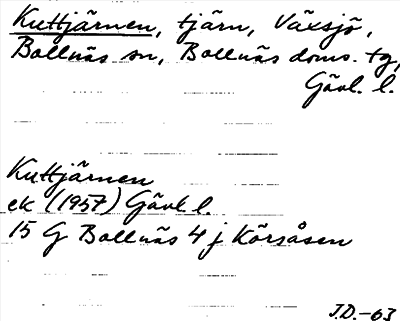 Kuttjärnen, tjärn, Växsjö,
Bollnäs sn, Bollnäs doms. tg,
Gävl. l.
Kuttjärnen
ek (1957) Gävl l.
15 G Bollnäs 4 j Körsåsen
J.D.-63